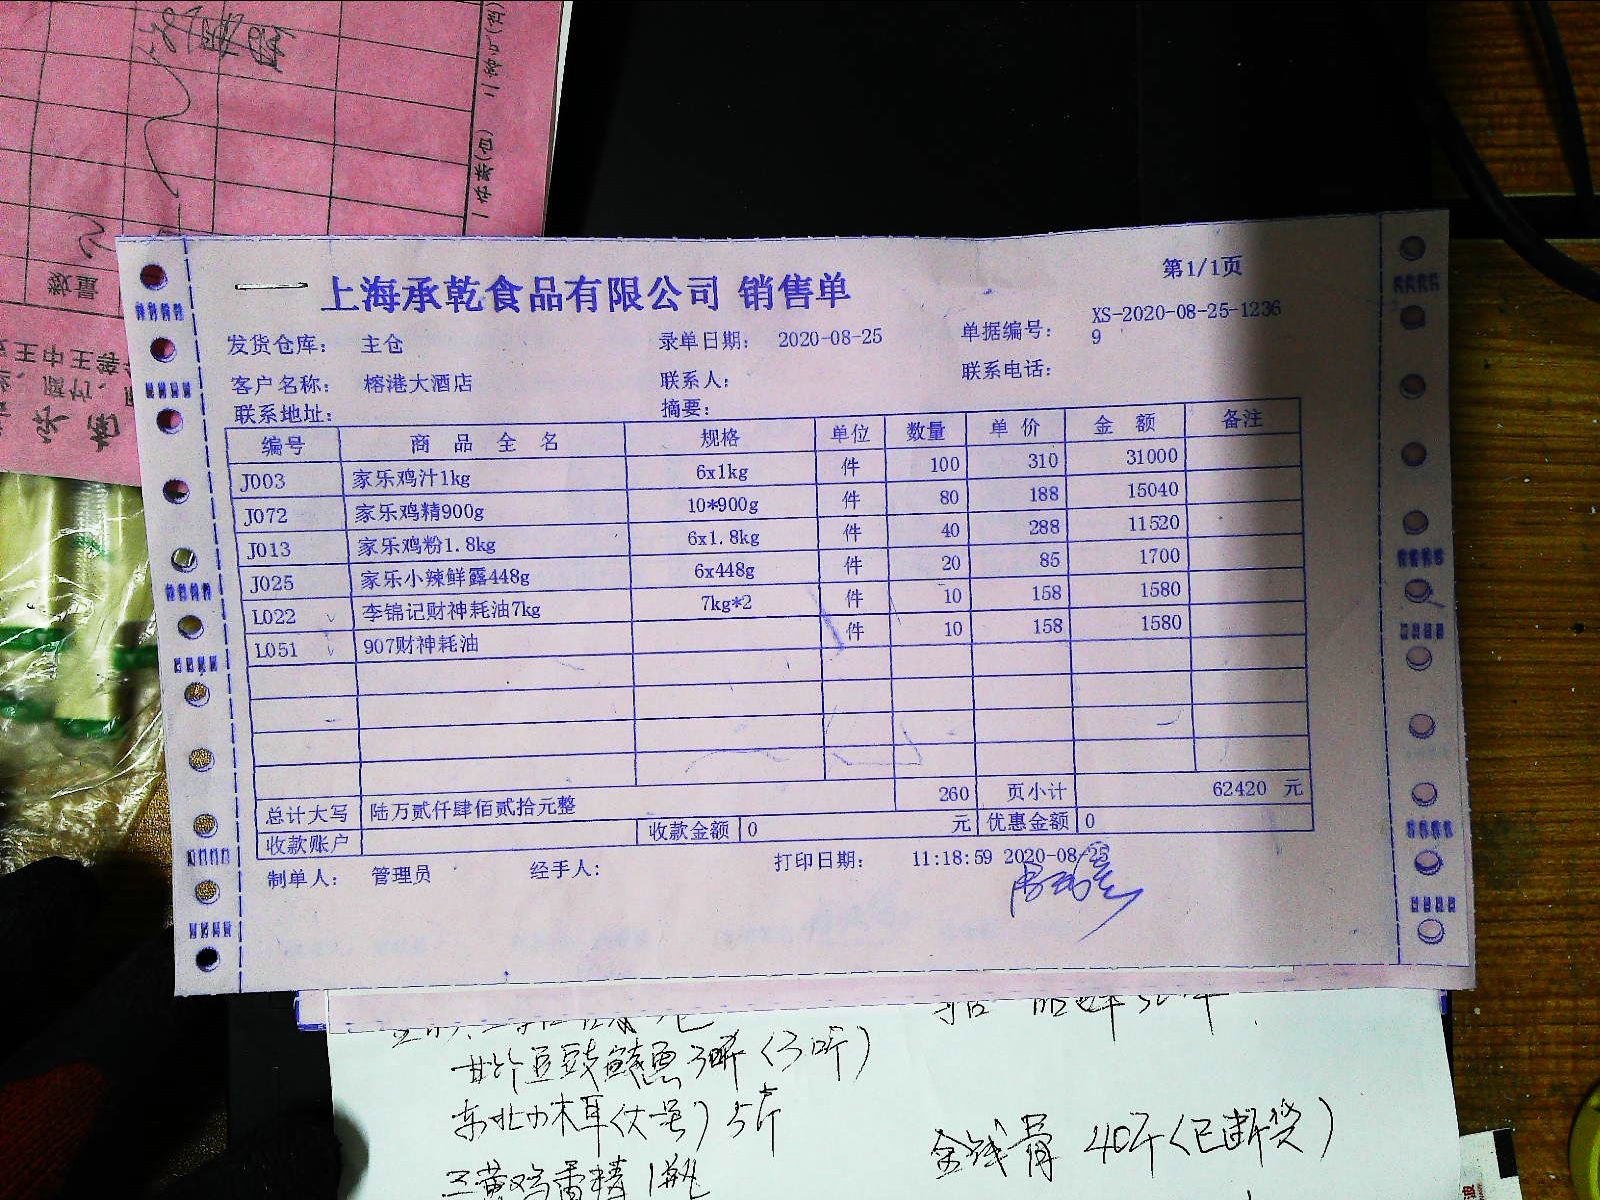 上海承乾食品有限公司 销售单
第1/1页
发货仓库: 主仓 录单日期: 2020-08-25 单据编号: XS-2020-08-25-1236
9
客户名称: 榕港大酒店 联系人: 联系电话:
联系地址: 摘要:
编号 商 品 全 名 规格 单位 数量 单 价 金 额 备注
J003 家乐鸡汁1kg 6x1kg 件 100 310 31000
J072 家乐鸡精900g 10*900g 件 80 188 15040
J013 家乐鸡粉1.8kg 6x1.8kg 件 40 288 11520
J025 家乐小辣鲜露448g 6x448g 件 20 85 1700
L022 李锦记财神耗油7kg 7kg*2 件 10 158 1580
L051 907财神耗油 件 10 158 1580
总计大写 陆万贰仟肆佰贰拾元整 260 页小计 62420 元
收款账户 收款金额 0 元 优惠金额 0
制单人: 管理员 经手人: 打印日期: 11:18:59 2020-08-25
数量
豆豉鲮鱼3听(3听)
东北小木耳(大号)5斤
金钱骨 40斤(已断货)
三黄鸡 1瓶